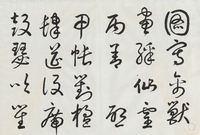 圖寫禽獸
畫綵仙靈
丙舍傍啓
甲帳對楹
肆筵設席
鼓瑟吹笙